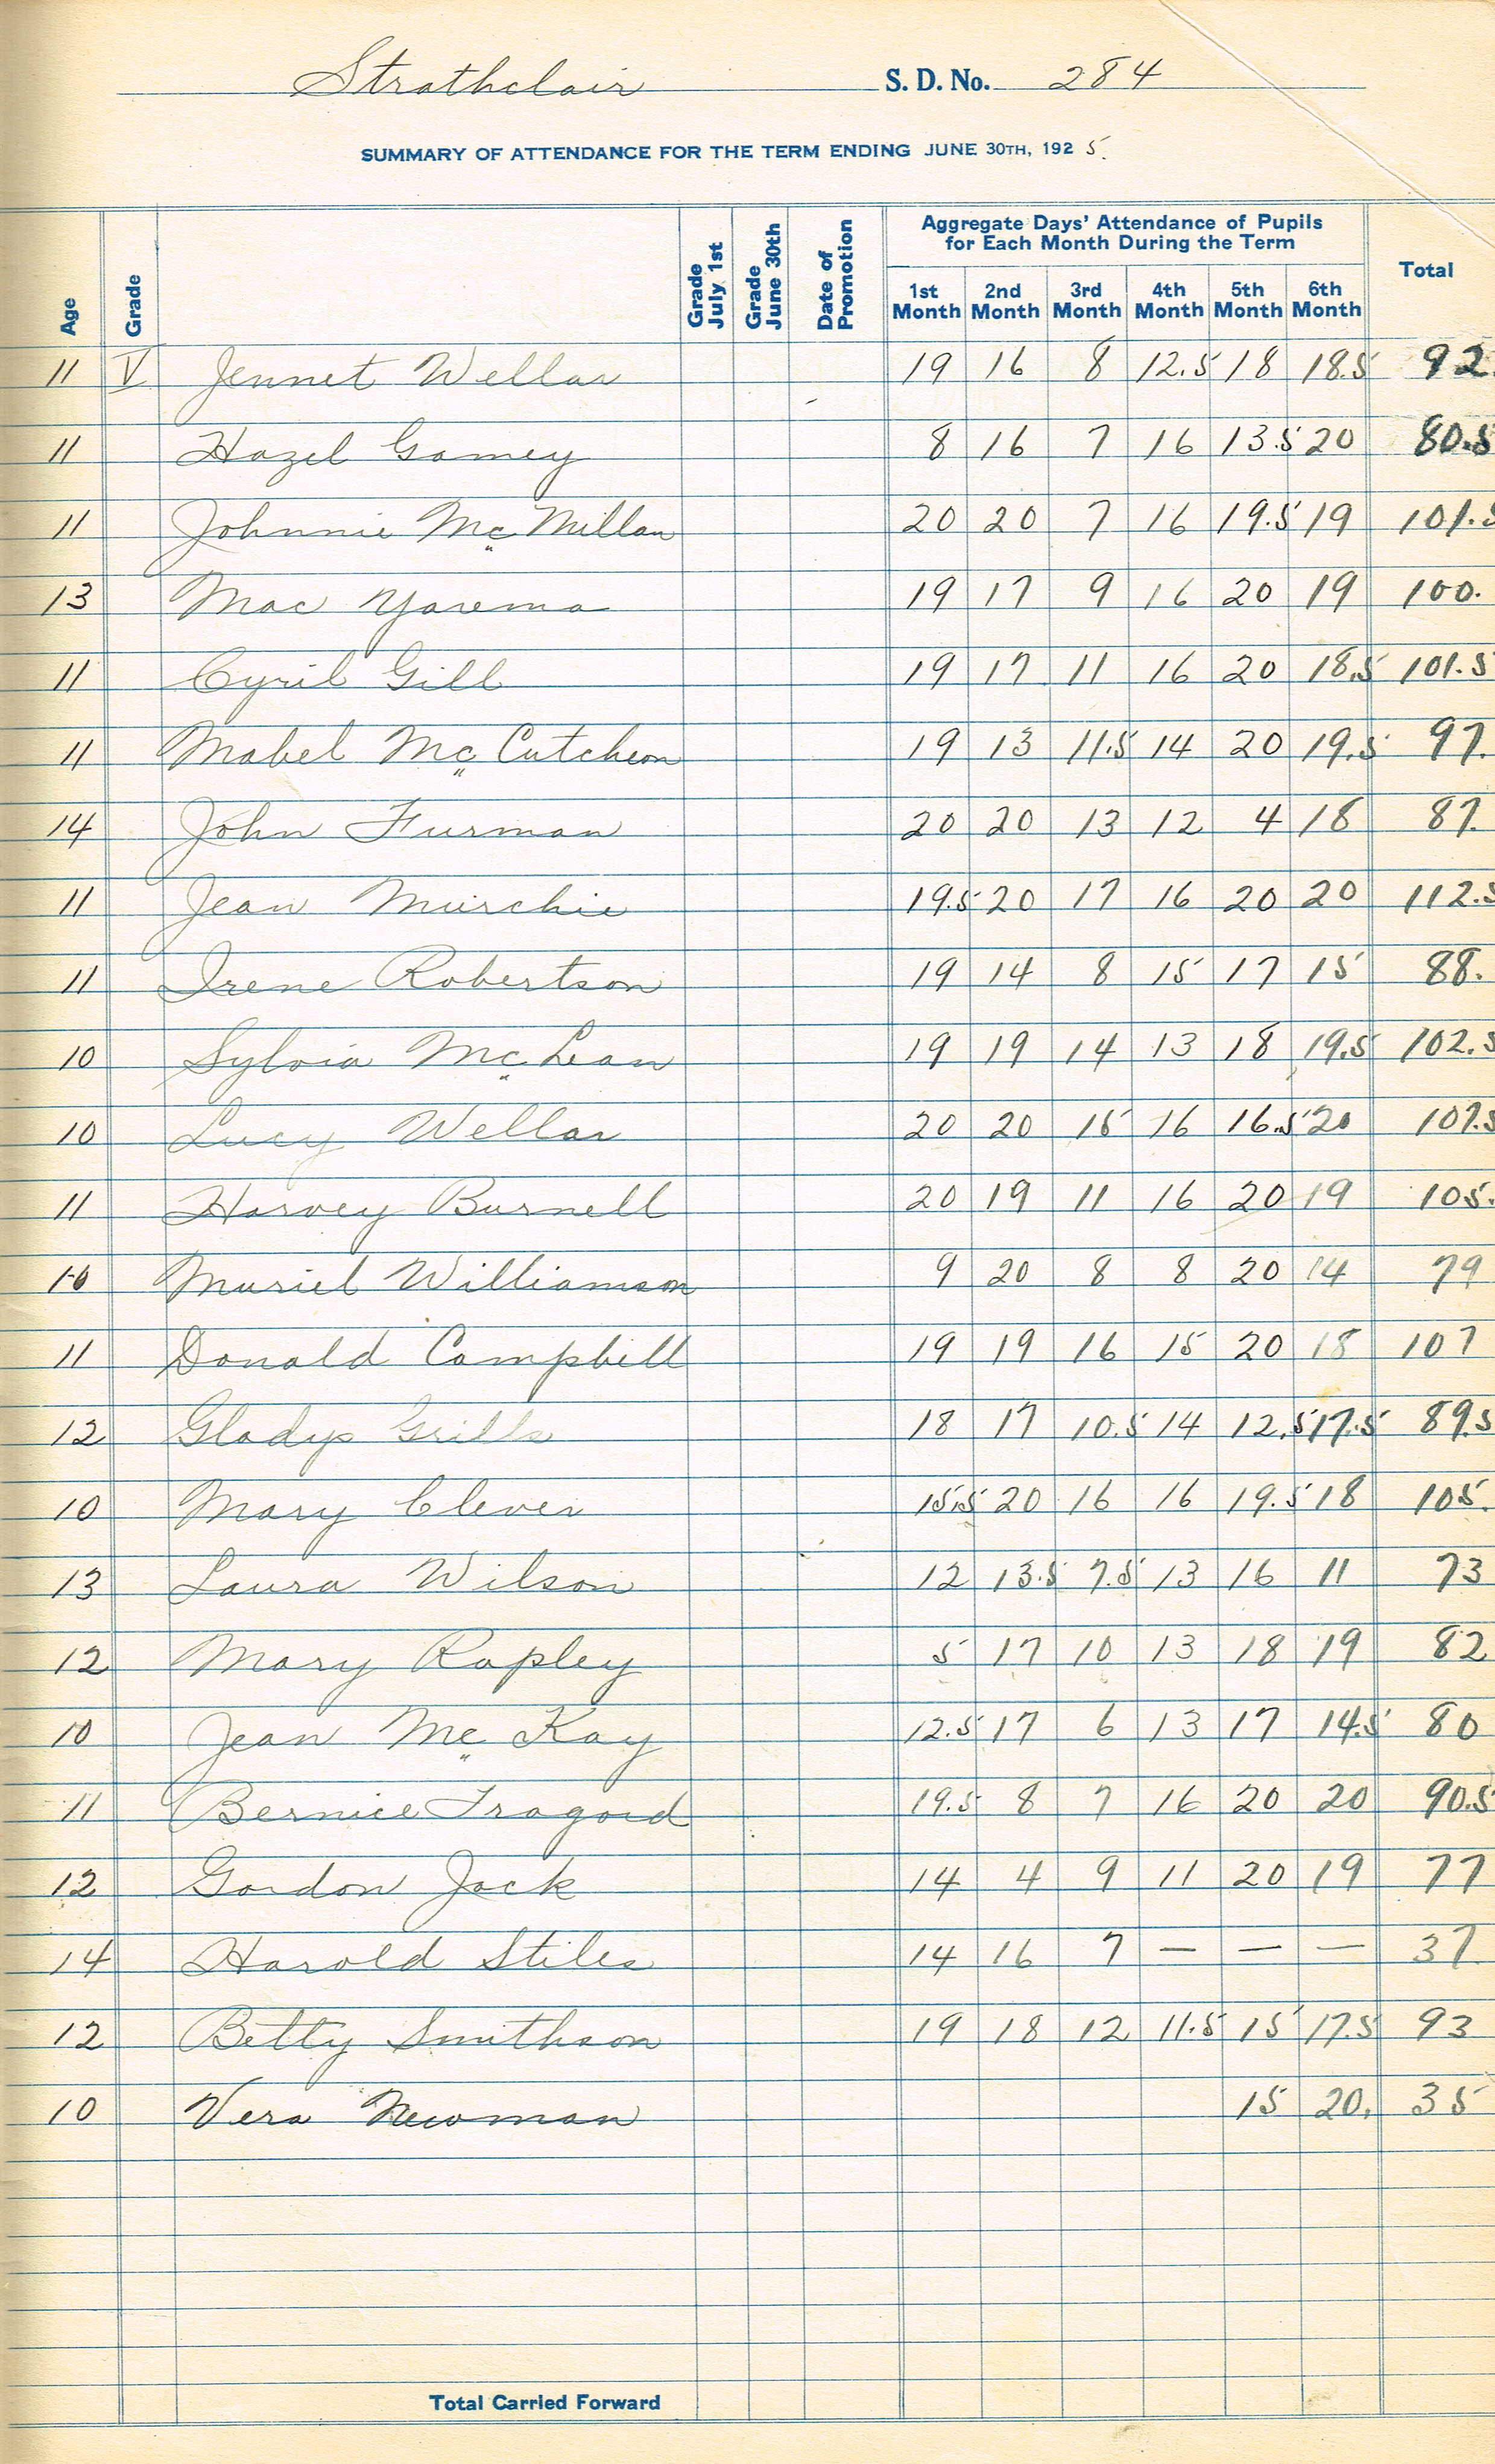 Strathclair S. D. No. 284
SUMMARY OF ATTENDANCE FOR THE TERM ENDING JUNE 30TH, 1925.
Age Grade Grade July 1st Grade June 30th Date of Promotion Aggregate Days' Attendance of Pupils for Each Month During the Term Total
1st Month 2nd Month 3rd Month 4th Month 5th Month 6th Month
11 V Jennet Wellar 19 16 8 12.5 18 18.5 92.
11 Hazel Gamey 8 16 7 16 13.5 20 80.5
11 Johnnie Mc Millan 20 20 7 16 19.5 19 101.5
13 Mac Yarema 19 17 9 16 20 19 100.
11 Cyril Gill 19 17 11 16 20 18.5 101.5
11 Mabel Mc Cutcheon 19 13 11.5 14 20 19.5 97.
14 John Furman 20 20 13 12 4 18 87.
11 Jean Murchie 19.5 20 17 16 20 20 112.5
11 Irene Robertson 19 14 8 15 17 15 88.
10 Sylvia Mc Lean 19 19 14 13 18 19.5 102.5
10 Lucy Wellar 20 20 15 16 16.5 20 107.5
11 Harvey Burnell 20 19 11 16 20 19 105.
10 Muriel Williamson 9 20 8 8 20 14 79
11 Donald Campbell 19 19 16 15 20 18 107
12 Gladys Grills 18 17 10.5 14 12.5 17.5 89.5
10 Mary Clever 15.5 20 16 16 19.5 18 105.
13 Laura Wilson 12 13.5 7.5 13 16 11 73
12 Mary Rapley 5 17 10 13 18 19 82
10 Jean Mc Kay 12.5 17 6 13 17 14.5 80
11 Bernice Tragord 19.5 8 7 16 20 20 90.5
12 Gordon Jack 14 4 9 11 20 19 77
14 Harold Stiles 14 16 7 — — — 37
12 Betty Smithson 19 18 12 11.5 15 17.5 93
10 Vera Newman 15 20. 35
Total Carried Forward